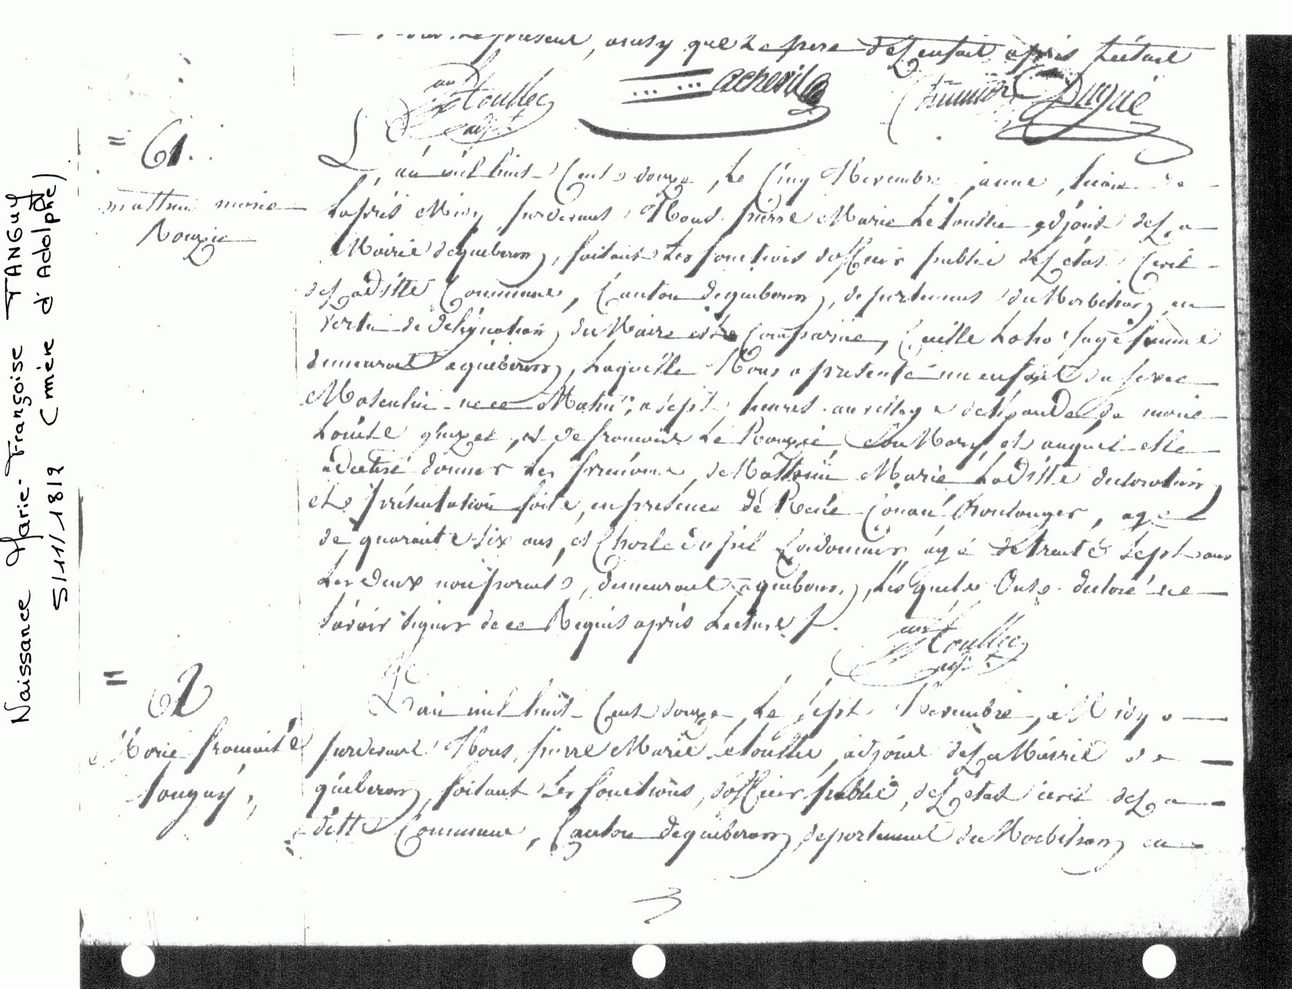 présent, ainsy que Le père de L'enfait après Lecture
Le toullec
adjt
achevil
Dugué
= 61.
mathui marie
Rouzic
L'an mil huit Cent douze, Le Cinq Novembre, a une heure de
Lapris Midy pardevant Nous pierre Marie Le toullic adjoint deLa
Mairie de quiberon, faisant Les fonctions d'officier public de L'état Civil
deLaditte Commune, Canton de quiberon, departement du Morbihan, en
Vertu de délégation du Maire est Comparue, Loho sage femme
demeurant a quiberon, Laquelle Nous a presenté un enfant du sexe
Masculin né ce Matin, a sept heures au village de de marie
Louise et de francois Le Rouzic, Son Mary, et auquel elle
a declaré donner Les prénoms de Mathui Marie Laditte declaration
et présentation faite, en presence de René Conan Boulanger, agé
de quarante Six ans, et Charle Cordonnier, agé de trante Sept ans
Les deux non parents, demeurant a quiberon, Lesquels Onts declaré ne
Savoir Signer de ce Requis après Lecture f.
Le toullec
adjt
= 62
Marie francoise
Tanguy
L'an mil huit Cent douze, Le Sept Novembre, a Midy
pardevant Nous, pierre Marie Le toullic, adjoint deLa Mairie de
quiberon, faisant Les fonctions, d'officier public, de L'état civil deLa
ditte Commune, Canton de quiberon, departement du Morbihan, en
3
Naissance Marie-Françoise TANGUY
5/11/1812 (mère d'Adolphe)